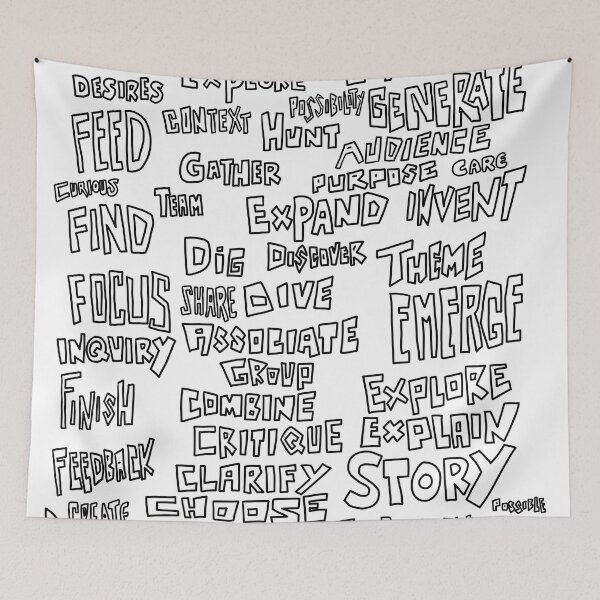 DESIRES EXPLORE
POSSIBILITY GENERATE
FEED CONTEXT HUNT
AUDIENCE
GATHER PURPOSE CARE
CURIOUS TEAM EXPAND INVENT
FIND
DIG DISCOVER THEME
FOCUS SHARE DIVE EMERGE
INQUIRY ASSOCIATE
GROUP EXPLORE
FINISH COMBINE
CRITIQUE EXPLAIN
FEEDBACK CLARIFY STORY
CREATE CHOOSE POSSIBLE